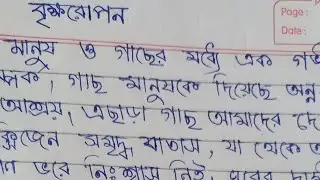 বৃক্ষরোপন
Page:
Date:
মানুষ ও গাছের মধ্যে এক
গাছ মানুষকে দিয়েছে অন্ন
আশ্রয়, এছাড়া গাছ আমাদের
সমৃদ্ধ বাতাস, যা থেকে
ভরে নিঃশ্বাস নিই